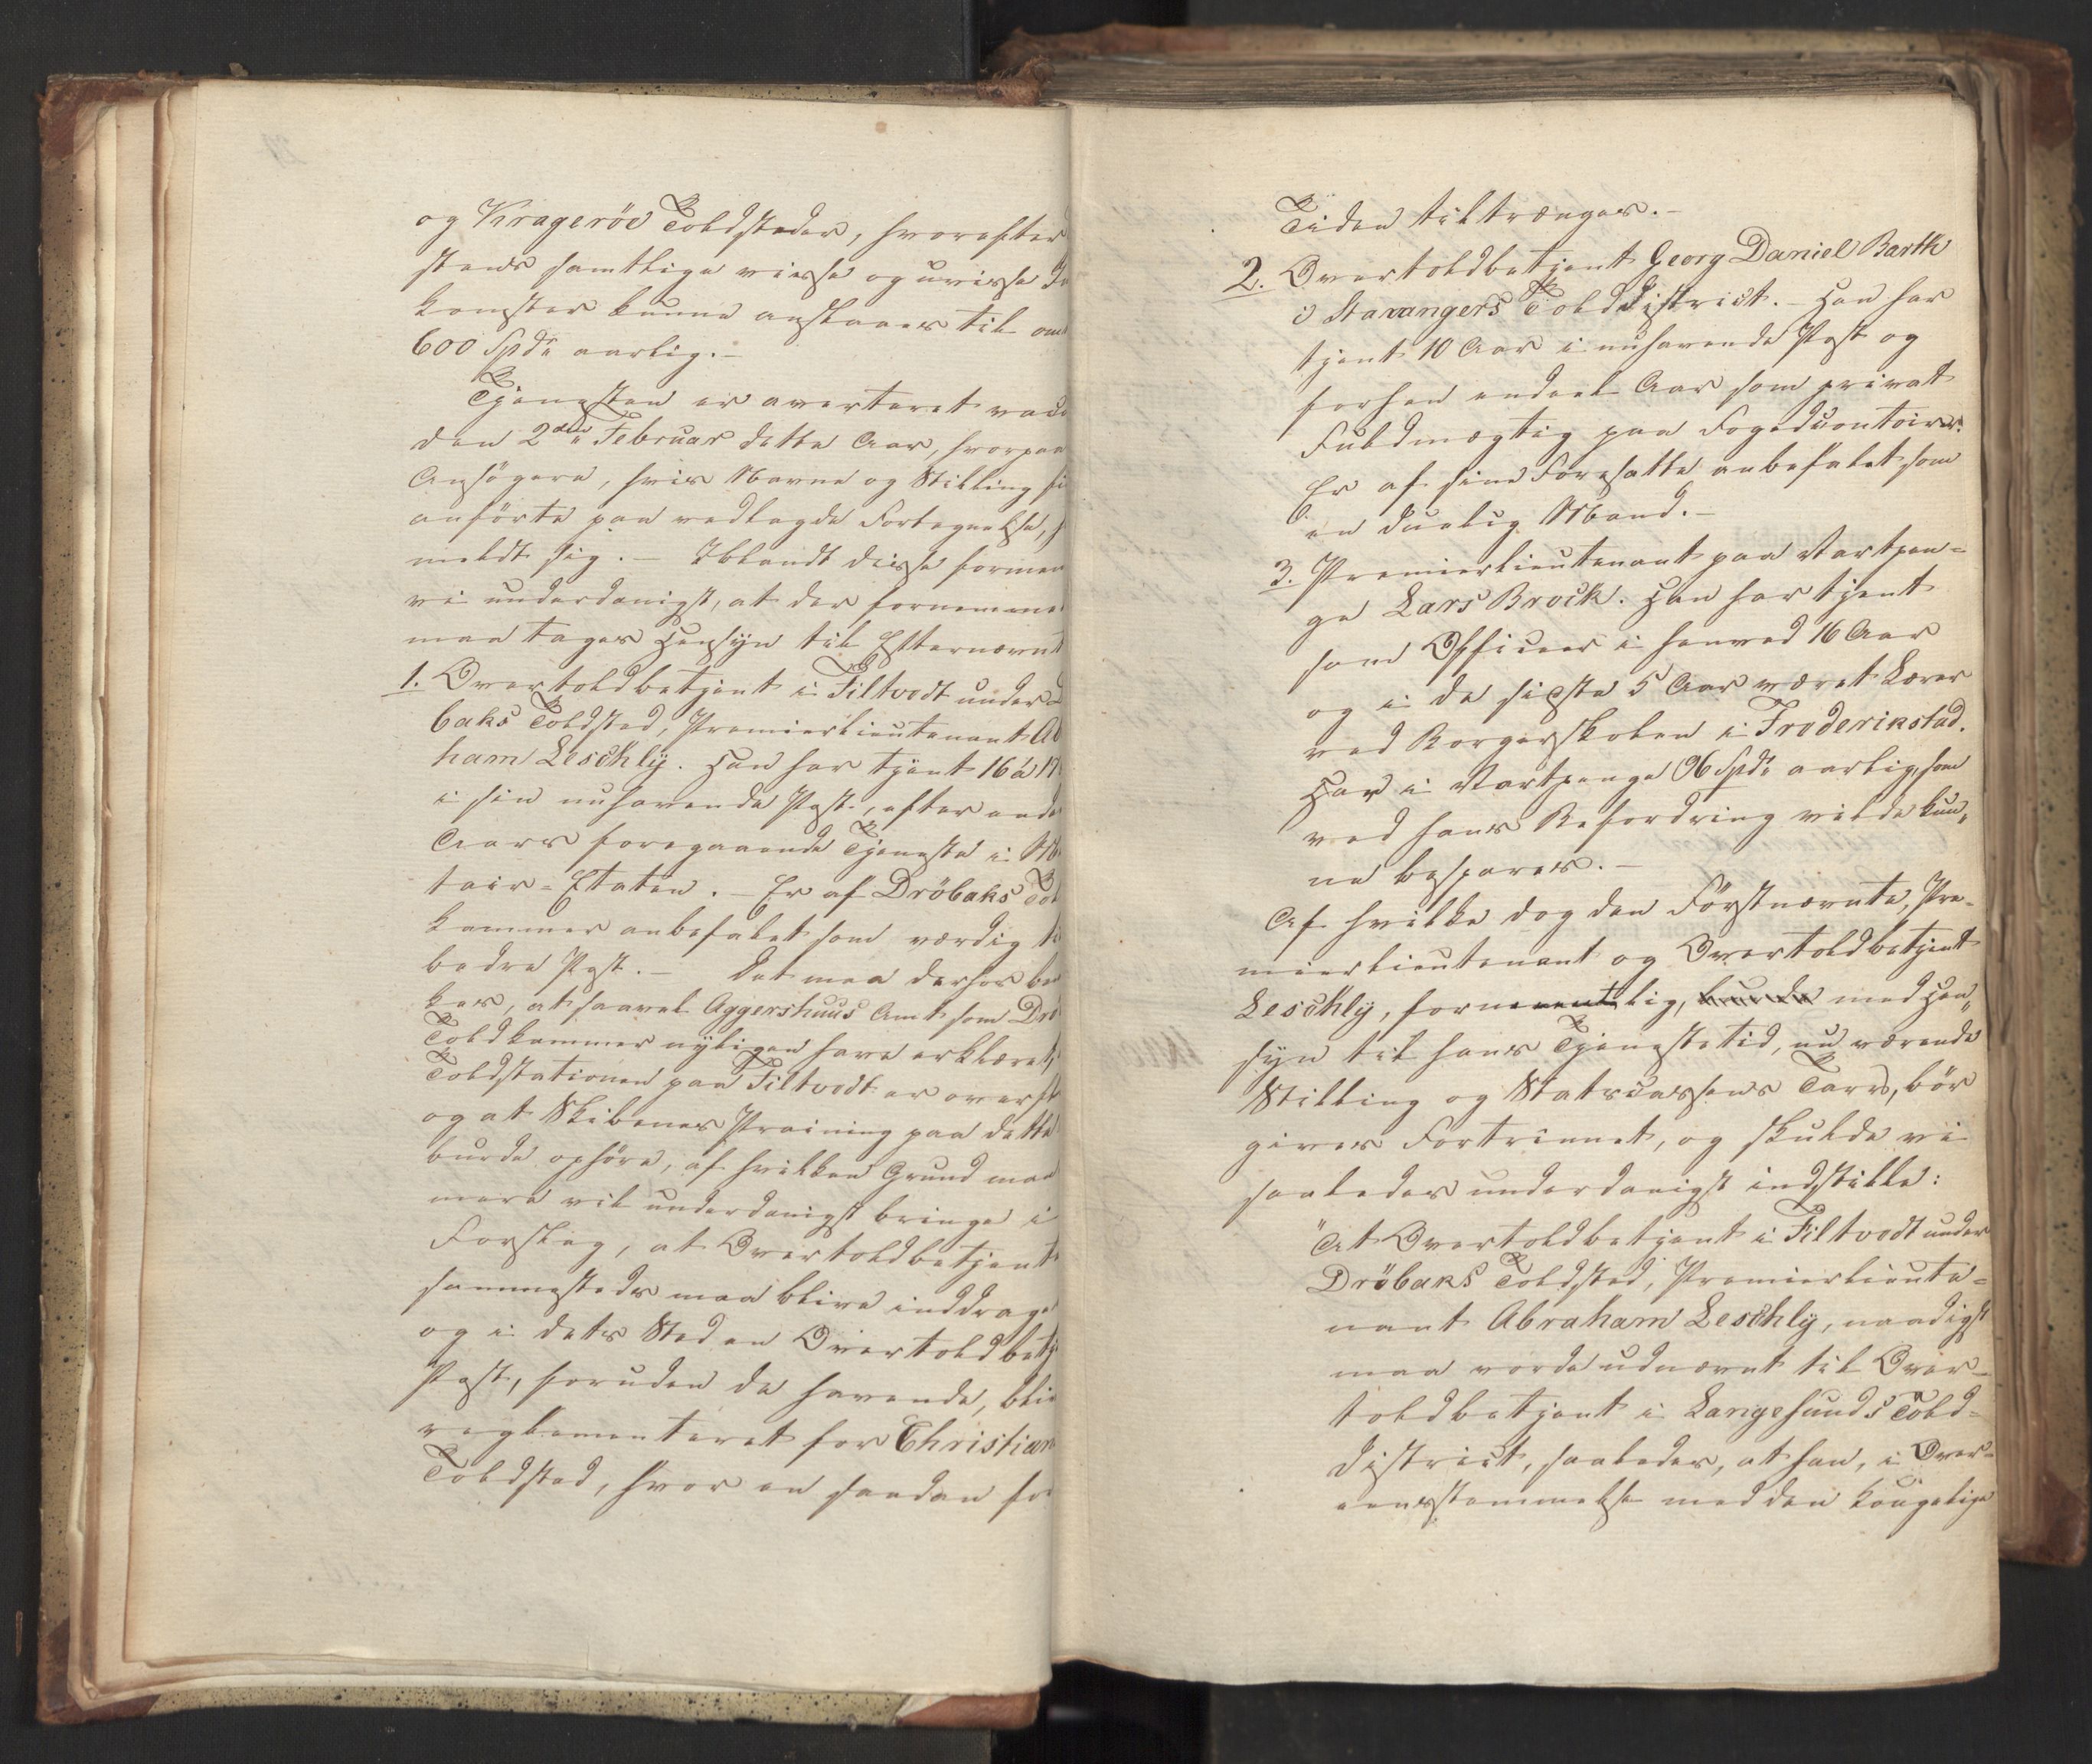 og Kragerøe Toldsteder, hvorefter
stens samtlige visse og uvisse In
komster kunne anslaaes til om
600 Spdr aarlig.-
Tjenesten er averteret vac
den 2den Februar dette Aar, hvorpaa
Ansögere, hvis Navne og Stilling fi
anförte paa vedlagde Fortegnelse, h
meldt sig. - Iblandt disse formen
vi underdanigst, at der fornemme
maa tages Hensyn til Efternævnt
1. Overtoldbetjent i Filtvedt under
baks Toldsted, Premierlieutenant Ab
ham Leschly. Han har tjent 16 á 17
i sin nuhavende Post, efter ende
Aars foregaaende Tjeneste i M
tair-Etaten. - Er af Dröbaks Tol
kammer anbefalet som værdig ti
bedre Post. - Det maa derhos be
kes, at saavel Aggershuus Amt som Drö
Toldkammer nyligen have erklæret,
Toldstationen paa Filtvedt er overfl
og at Skibenes Praining paa dette
burde ophöre, af hvilken Grund man
mere vil underdanigst bringe i
Forslag, at Overtoldbetjent
sammesteds maa blive inddrage
og i dets Sted en Overtoldbetj
Post, foruden de havende, bli
reglementeret for Christian
Toldsted, hvor en saadan for
Tiden tiltrænges.-
2. Overtoldbetjent Georg Daniel Barth
i Stavangers Tolddistrict. - Han har
tjent 10 Aar i nuhavende Post og
forhen endeel Aar som privat
Fuldmægtig paa Fogedcontoirer.
Er af sine Foresatte anbefalet som
en duelig Mand.-
3. Premierlieutenant paa Vartpen=
ge Lars Brock. Han har tjent
som Officeer i henved 16 Aar
og i de sidste 5 Aar været Lærer
ved Borgerskolen i Frederikstad.
Har i Vartpenge 96 Spdr aarlig, som
ved hans Befordring vilde kun„
ne besparer.-
Af hvilke dog den Förstnævnte, Pre-
mierlieutenant og Overtoldbetjent
Leschly, formeentlig, burde med Hen„
syn til hans Tjenestetid, nu værende
Stilling og Statscassens Tarv, bör
gives Fortrinnet, og skulde vi
saaledes underdanigst indstille:
"At Overtoldbetjent i Filtvedt under
Dröbaks Toldsted, Premierlieute=
nant Abraham Leschly, naadigst
maa vorde udnævnt til Over-
toldbetjent i Langesunds Told-
district, saaledes, at han, i Over-
eensstemmelse med den kongelige